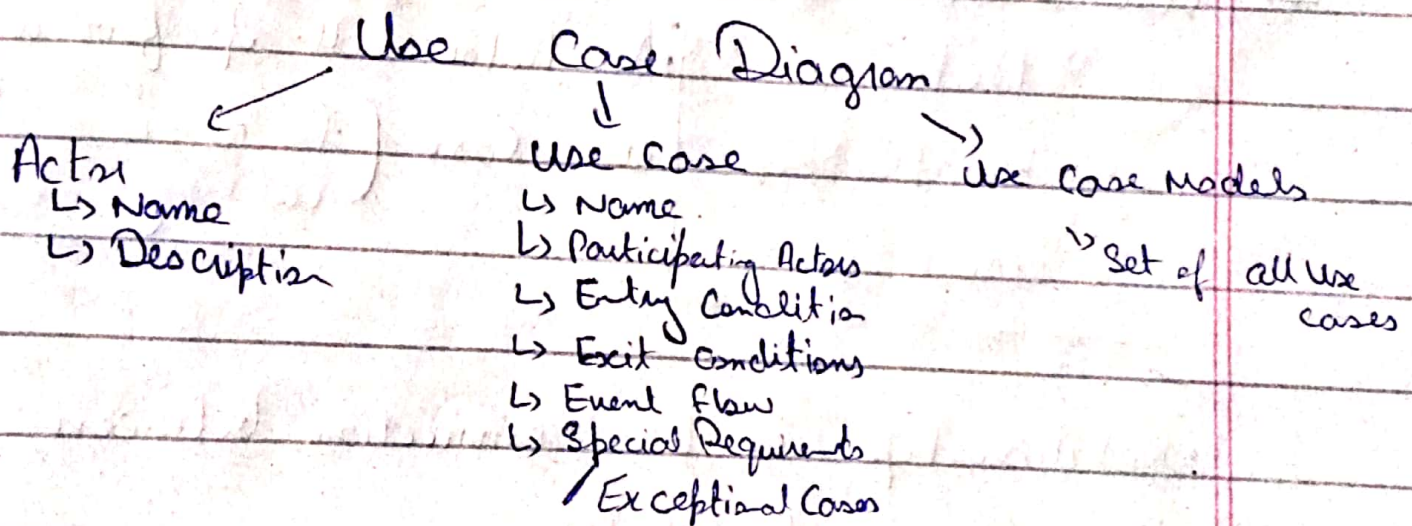 Use Case Diagram
Actor
↳ Name
↳ Description
Use Case
↳ Name
↳ Participating Actors
↳ Entry Condition
↳ Exit Conditions
↳ Event flow
↳ Special Requirements
/ Exceptional Cases
Use Case Models
↳ Set of all Use
cases